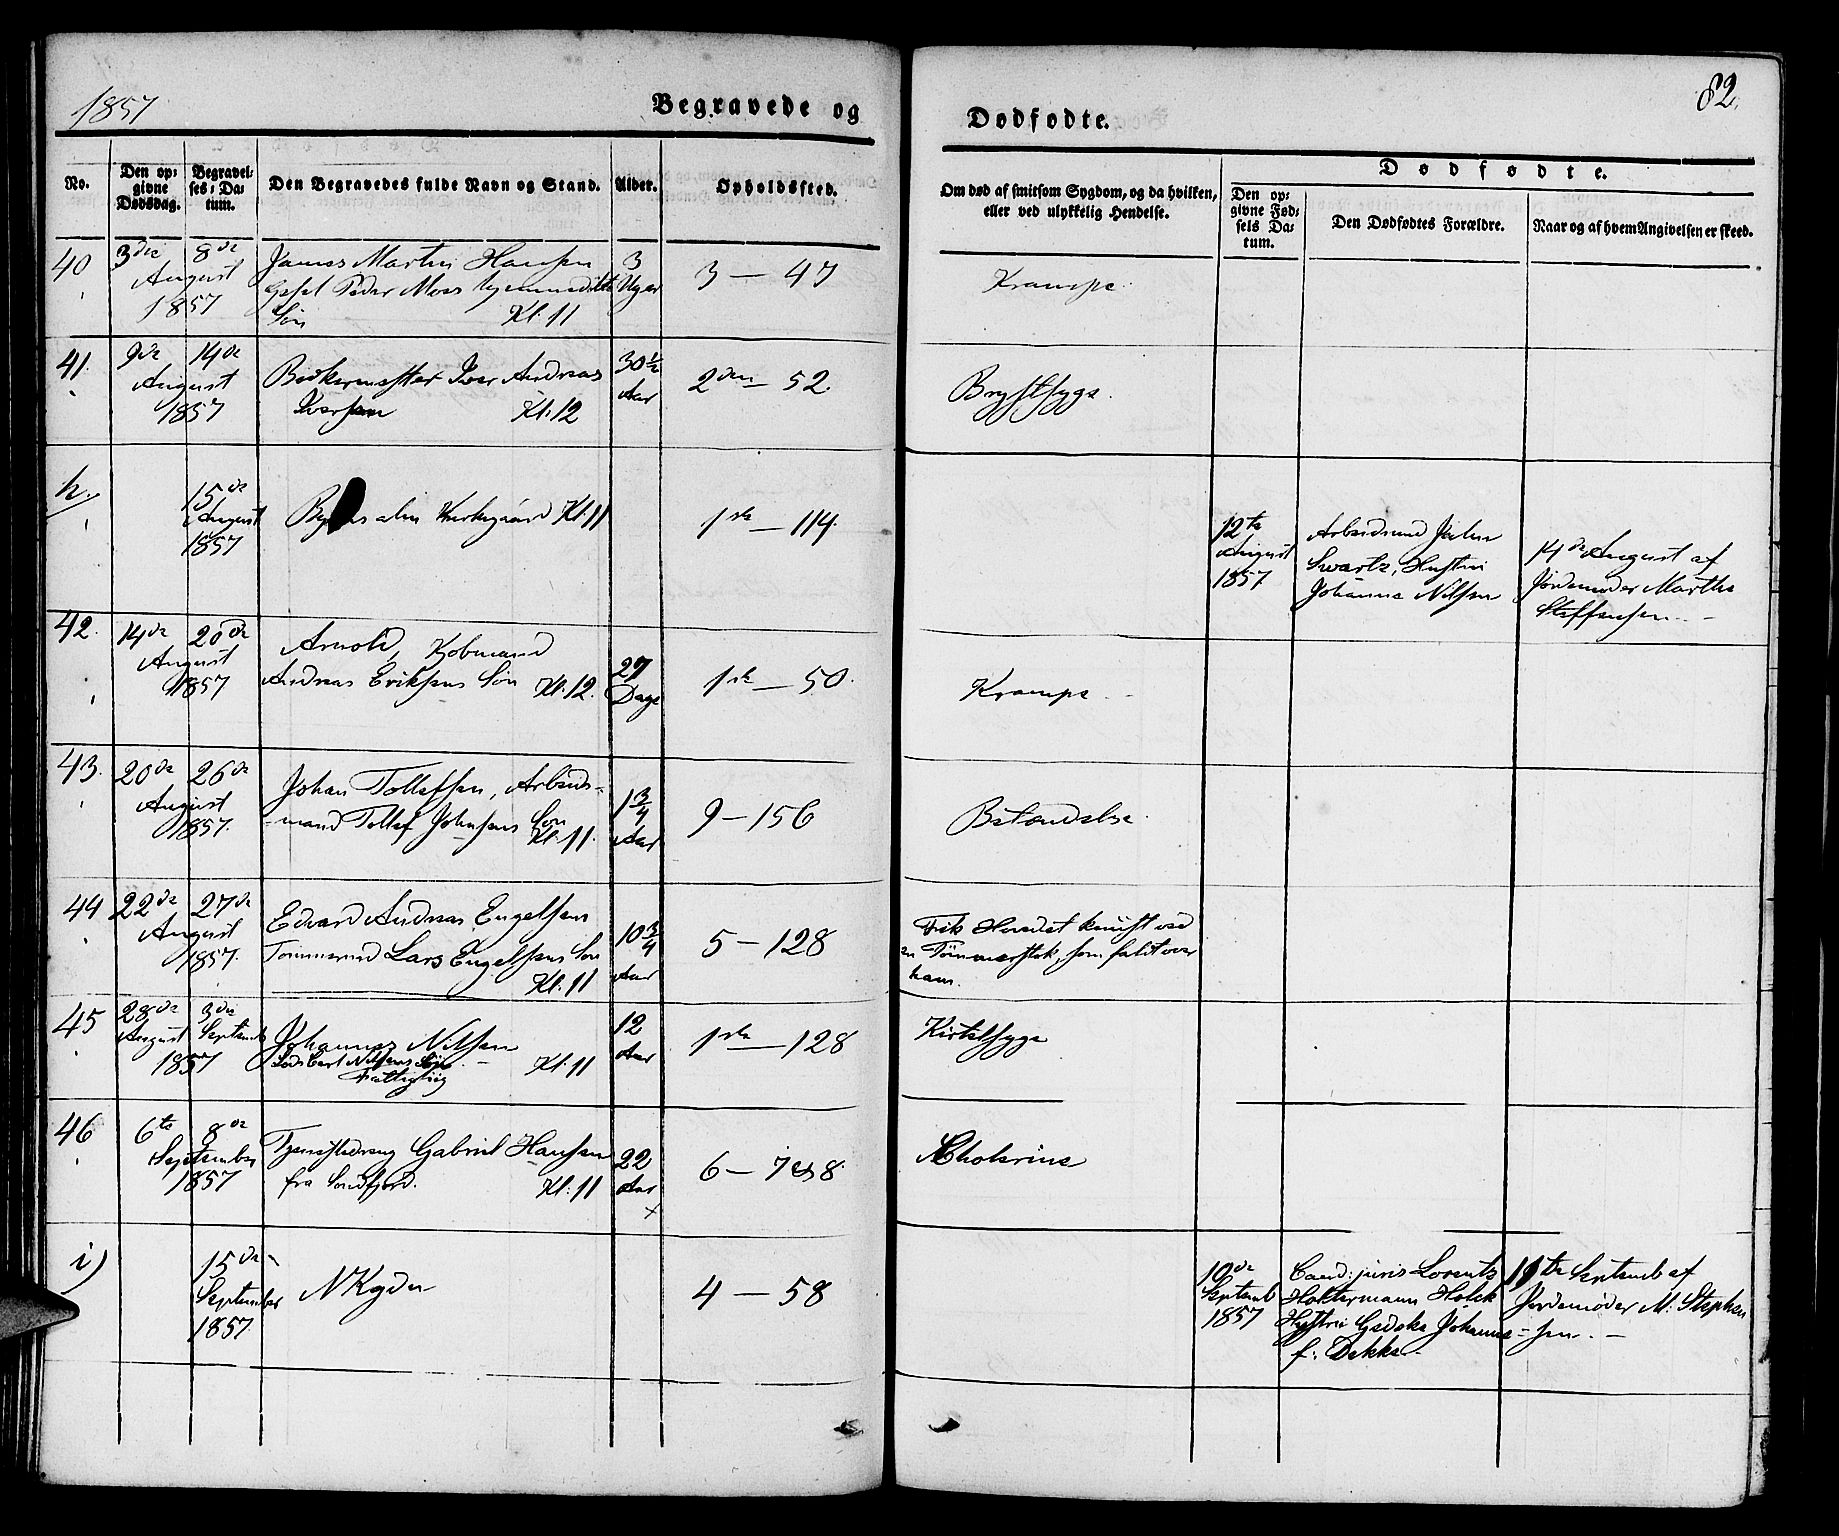 1857
Begravede og
Dødfødte.
82.
No.
Den op-
givne
Dødsdag.
Begravel-
ses-Da-
tum.
Den Begravedes fulde Navn og Stand.
Alder.
Opholdssted.
Om død af smitsom Sygdom, og da hvilken,
eller ved ulykkelig Hendelse.
Dødfødte.
Den op-
givne Fød-
sels Da-
tum.
Den Dødfødtes Forældre.
Naar og af hvem Angivelsen er skeed.
40
3die
8de
August
1857
Martin Hansen
Peder Moss
Søn Kl: 11
3
Uger
3 – 47
Krampe
41.
9de
14de
August
1857
Bødkermester Iver Andreas
Iversen Kl: 12
30½
Aar
2den – 52.
Brystsyge.
h.
15de
August
1857
Kl: 11
1ste – 114.
12te
August
1857
Arbeidsmd John
Swartz, Hustru
Johanna Nilsen
14de August af
Jordemoder Marthe
Steffensen.
42.
14de
20de
August
1857
Arnold, Kjøbmand
Andreas Eriksens Søn Kl: 12.
27
Dage
1ste – 50.
Krampe
43.
20de
26de
August
1857.
Johan Tollefsen, Arbeids-
mand Tollef Johnsens Søn
Kl: 11.
1¾
Aar
9 – 156
Betændelse.
44
22de
27de
August
1857.
Edvard Andreas Engelsen
Tømmermd Lars Engelsens Søn
Kl: 11
10¾
Aar
5 – 128
Fik Hovedet knust ved
en Tømmerstok, som faldt over
ham.
45
28de
August
3die
Septemb
1857
Johannes Nilsen
Nilsens Søn Kl: 11
Fattiglig
12
Aar
1ste – 128
Kirtelsyge
46
6te
8de
September
1857
Tjenestedreng Gabriel Hansen
fra Søndfjord. Kl: 11
22
Aar
6 – 7 & 8.
Cholerine
i)
15de
September
1857.
N Kgdn
4 – 58
10de
Septemb
1857
Cand: juris Lorentz
Holtermann Holck
Hustru Gedske Johanne
f: Dekke
11te Septemb af
Jordemoder M: Stephen-
sen.